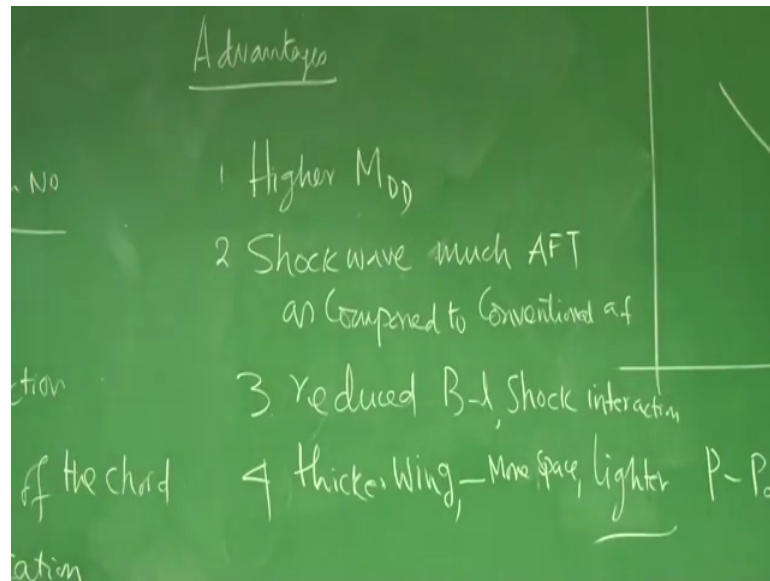 Advantages
n NO
1 Higher MDD
2 Shockwave much AFT
as Compared to Conventional af
ction
3. reduced B-l, Shock interaction
of the chord
4 thicker Wing, – More Space, lighter
P – P
iation